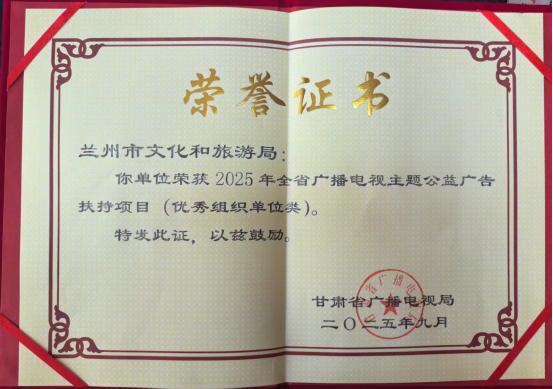 荣誉证书
兰州市文化和旅游局：
你单位荣获 2025 年全省广播电视主题公益广告
扶持项目（优秀组织单位类）。
特发此证，以兹鼓励。
甘肃省广播电视局
二〇二五年九月